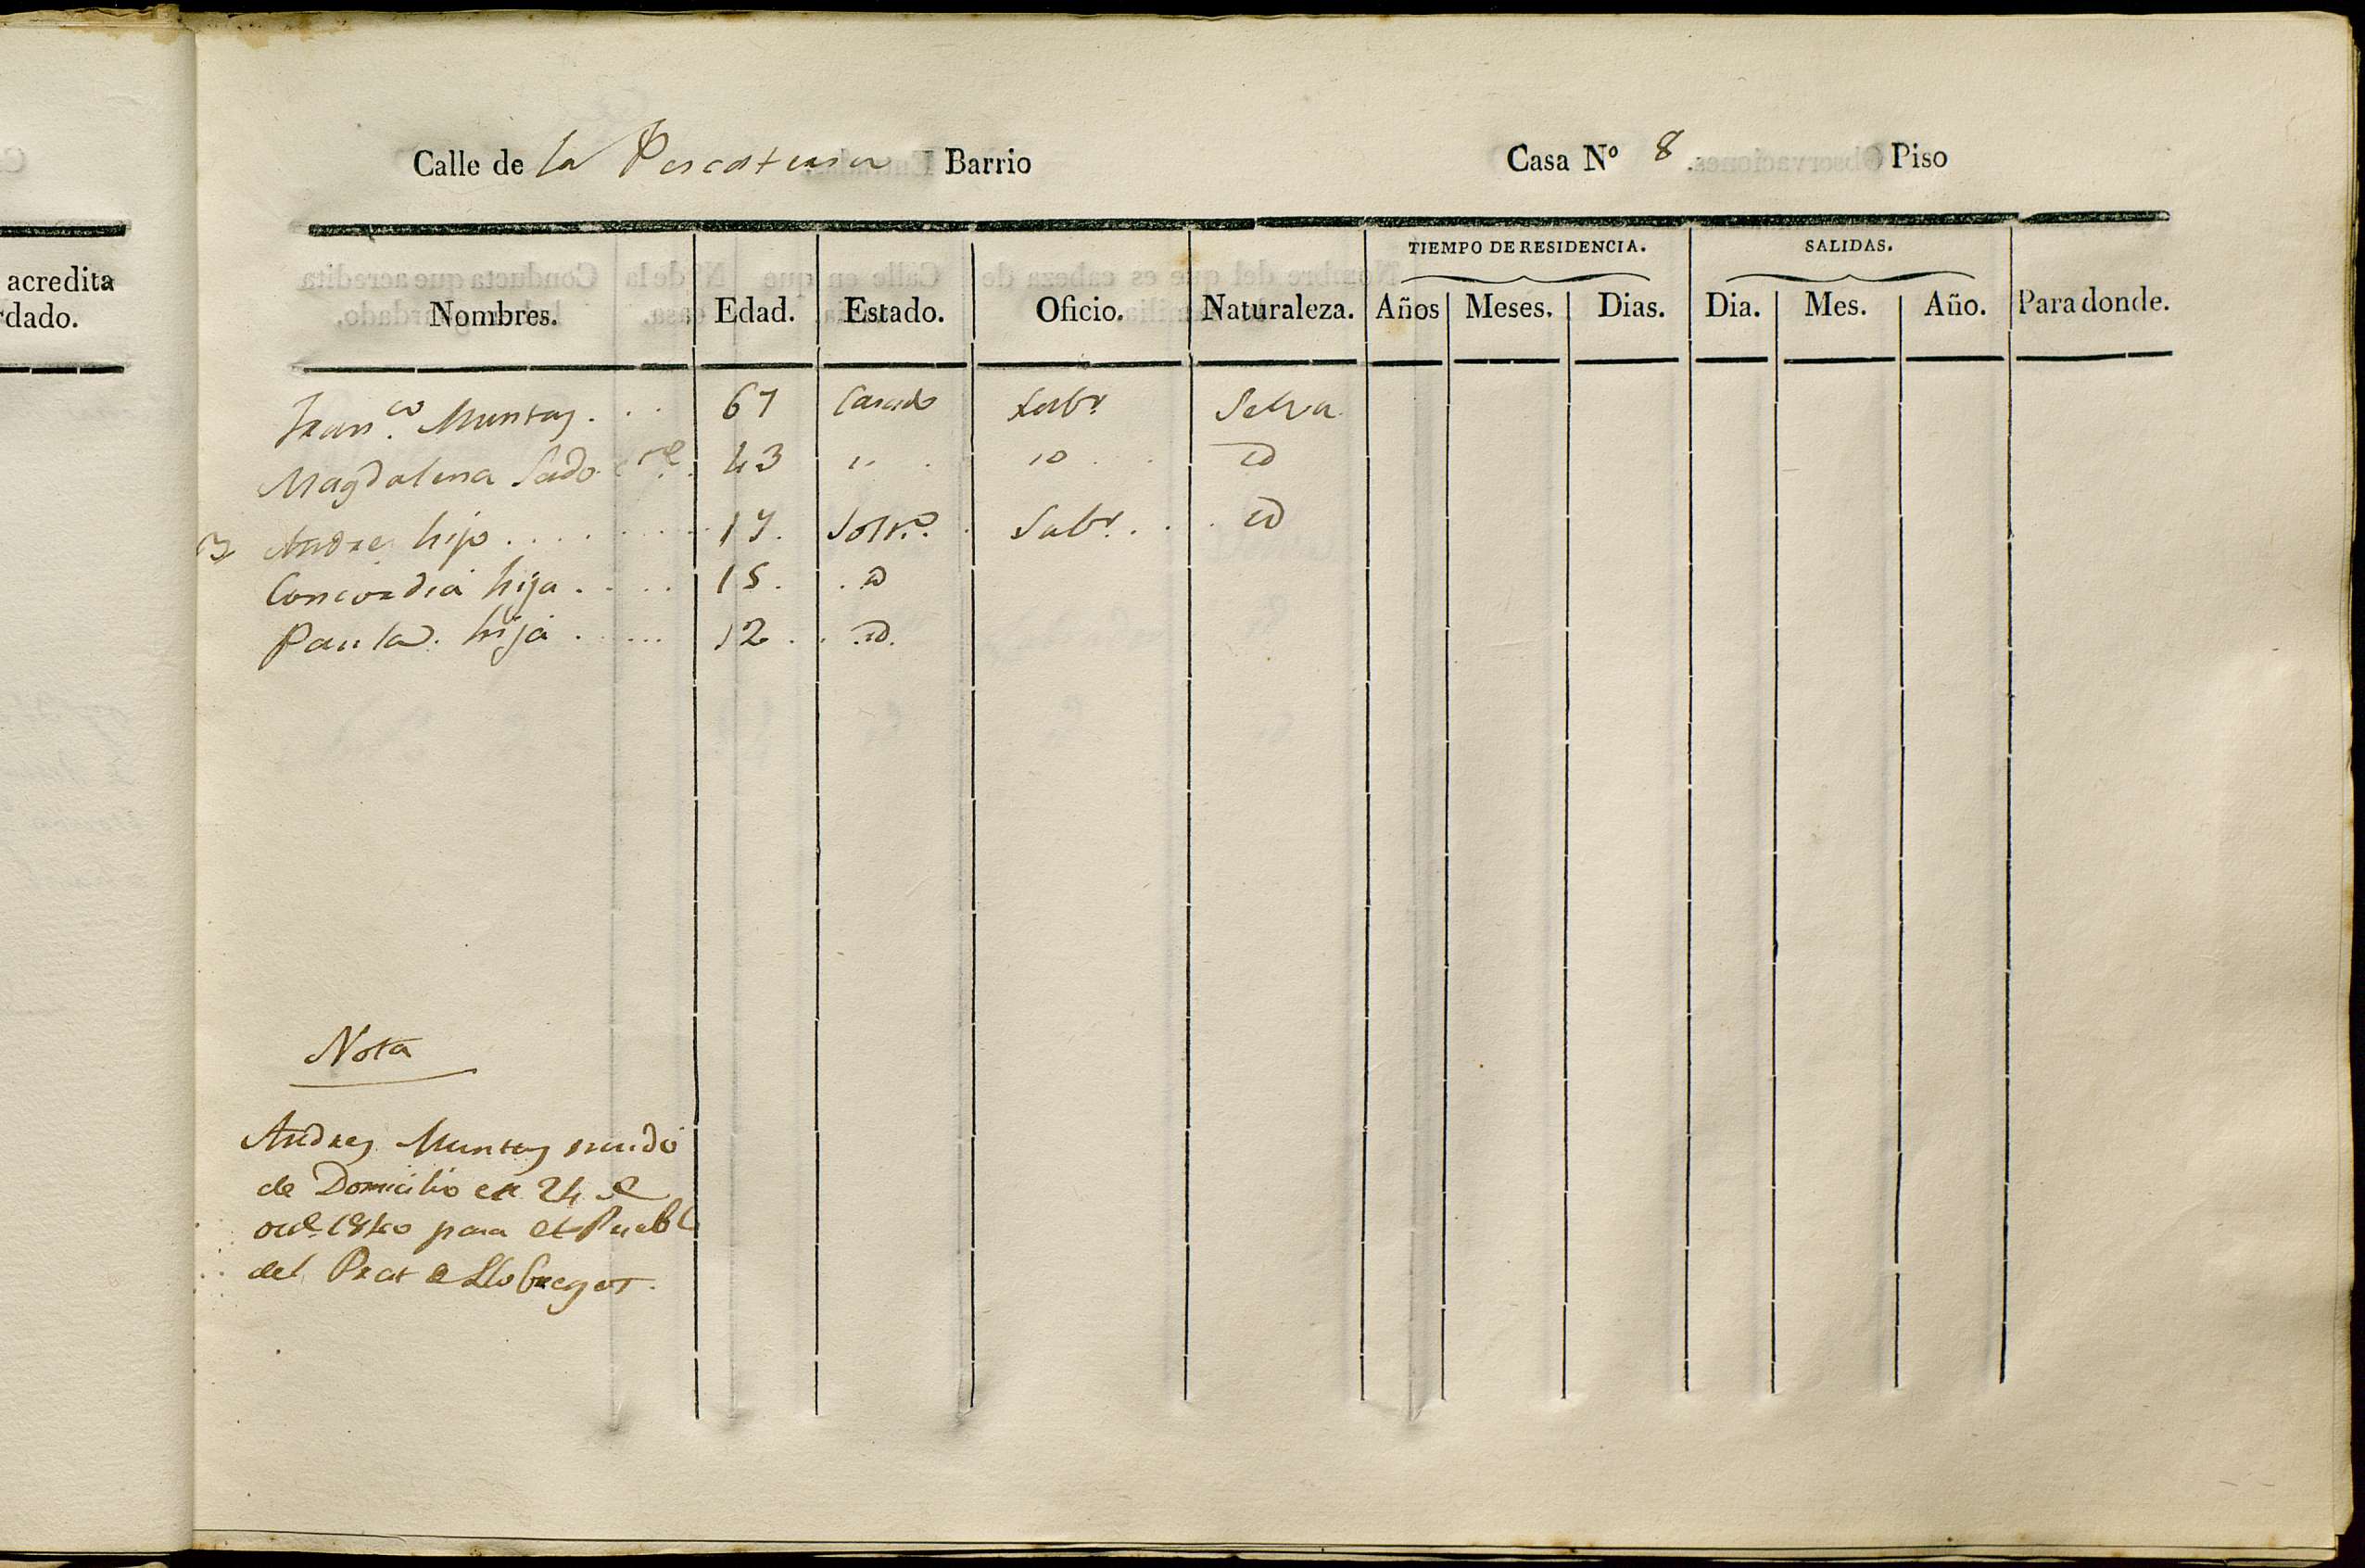 acredita
dado.
Calle de la Pescateria Barrio Casa Nº 8 Piso
TIEMPO DE RESIDENCIA. SALIDAS.
Nombres. Edad. Estado. Oficio. Naturaleza. Años Meses. Dias. Dia. Mes. Año. Para donde.
Franco. Muntay. 67 Casado Labr Selva
Magdalena 43 " id id
Andres hijo 17. Soltro. Labr. id
Concordia hija 15. id
Paula. hija 12. id.
Nota
Andres Muntay mudó
de Domicilio en 24 de
oue. 1840 para el Puebl
del Prat de Llobregat.